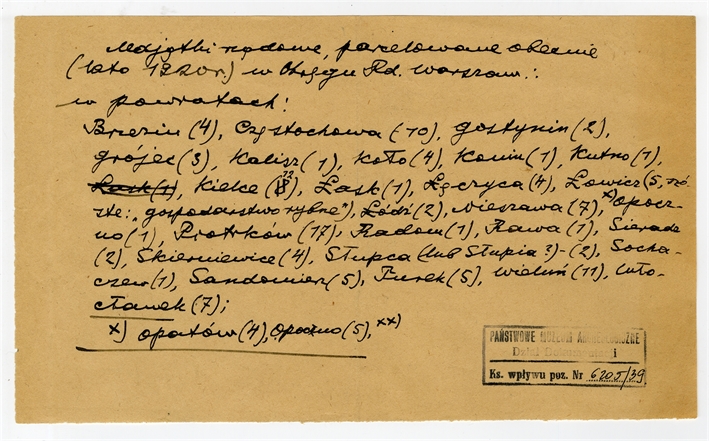 Majątki rządowe, parcelowane obecnie
(lato 1920 r.) w Okręgu Rd. Warszaw.:
w powiatach:
Brzezin (4), Częstochowa (10), Gostynin (2),
Grójec (3), Kalisz (1), Koło (4), Konin (1), Kutno (1),
Łask (1), Kielce (12), Łask (1), Łęczyca (4), Łowicz (5,
"gospodarstwo rybne"), Łódź (2), Nieszawa (7), x) Opocz-
no (1), Piotrków (17), Radom (1), Rawa (1), Sieradz
(2), Skierniewice (4), Słupca (lub Słupia?) - (2), Socha-
czew (1), Sandomierz (5), Turek (5), Wieluń (11), Wło-
cławek (7);
x) Opatów (4), Opoczno (5), xx)
PAŃSTWOWE MUZEUM ARCHEOLOGICZNE
Dział
Ks. wpływu poz. Nr 6205/39